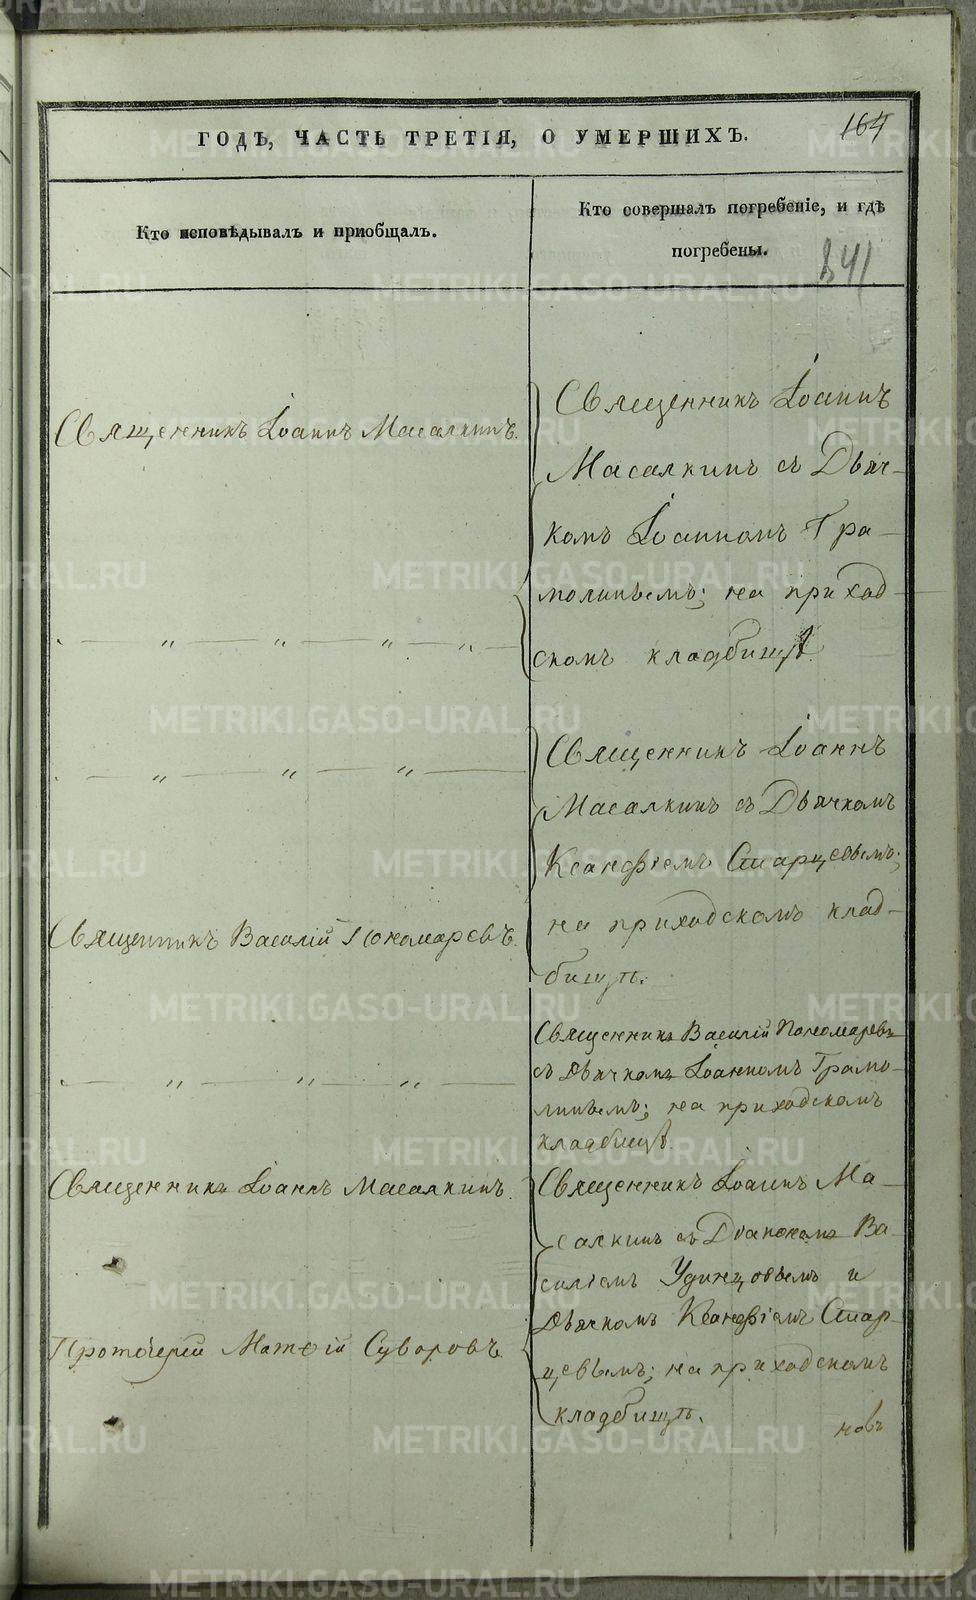 164
ГОДЪ, ЧАСТЬ ТРЕТІЯ, О УМЕРШИХЪ.
Кто исповѣдывалъ и пріобщалъ.
Кто совершалъ погребеніе, и гдѣ
погребены.
841
Священникъ Іоаннъ Масалкинъ.
Священникъ Іоаннъ
Масалкинъ съ Дьяч-
комъ Іоанномъ Гра-
молинымъ; на приход-
скомъ кладбищѣ
Священникъ Іоаннъ
Масалкинъ съ Дьячкомъ
Ксанфіемъ Старцевымъ;
на приходскомъ клад-
бищѣ.
Священникъ Василій Пономаревъ.
Священникъ Василій Пономаревъ
съ Дьячкомъ Іоанномъ Грамо-
линымъ; на приходскомъ
кладбищѣ.
Священникъ Іоаннъ Масалкинъ.
Священникъ Іоаннъ Ма-
салкинъ съ Діакономъ Ва-
силіемъ Удинцовымъ и
Дьячкомъ Ксанфіемъ Стар-
цевымъ; на приходскомъ
кладбищѣ.
Протоіерей Матѳій Суворовъ.
METRIKI.GASO-URAL.RU